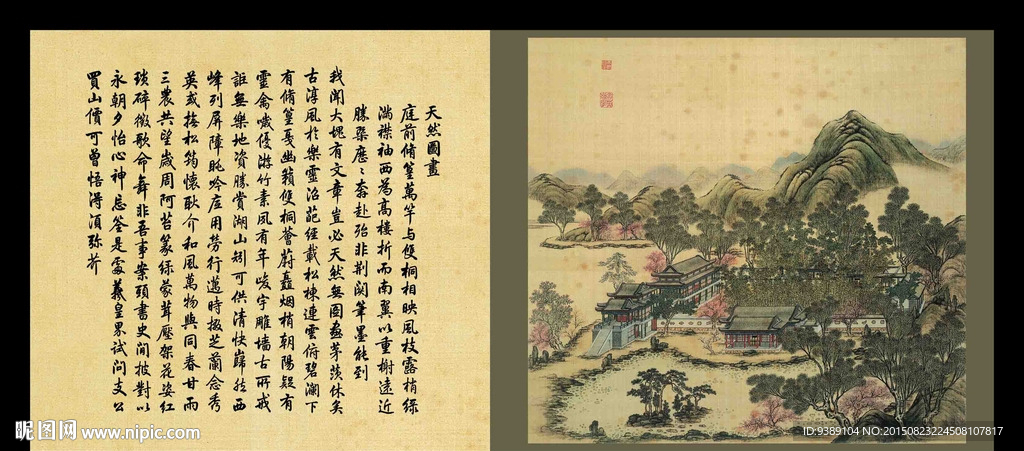 天然圖畫
庭前脩篁萬竿与雙桐相映風枝露梢綠
滿襟袖西為高樓折而南翼以重榭遠近
勝槩歷々奔赴殆非荊関筆墨能到
我聞大塊有文章豈必天然無圖畫茅茨休矣
古淳風於樂靈沼葩經載松棟連雲俯碧瀾下
有脩篁戛幽籟雙桐薈蔚矗烟梢朝陽疑有
靈禽噦優游竹素夙有年峻宇雕墻古所戒
詎無樂地資勝賞湖山矧可供清快歸西
峰列屏障眺吟底用勞行邁時掇芝蘭念秀
英或撫松筠懷耿介和風萬物與同春甘雨
三農共望歲周阿苔篆綠蒙茸壓架花姿紅
瑣碎徵歌命舞非吾事案頭書史閒披對以
永朝夕怡心神忘筌是處羲皇界試問支公
買山價可曾悟得須彌芥
昵图网 www.nipic.com
ID:9389104 NO:20150823224508107817